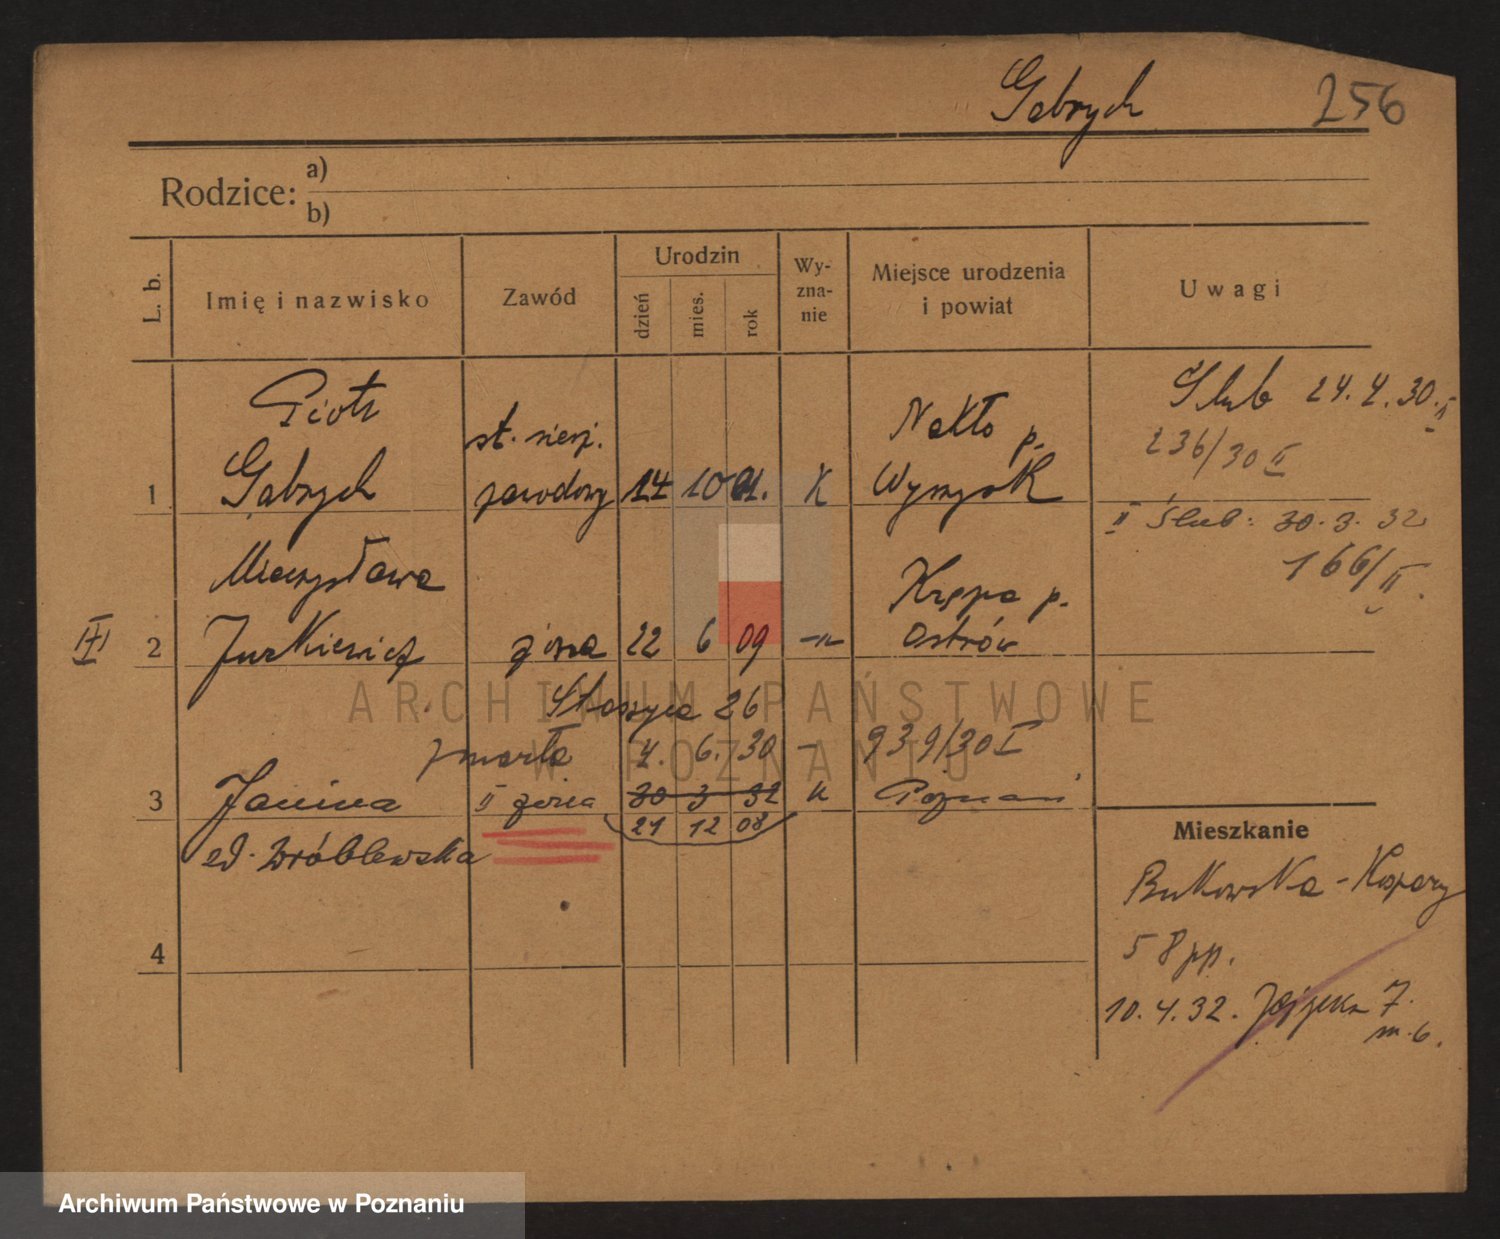 Gabrych 256
Rodzice: a)
b)
L. b.
Imię i nazwisko
Zawód
Urodzin
dzień
mies.
rok
Wy-
zna-
nie
Miejsce urodzenia
i powiat
Uwagi
Piotr
Gabrych
st. sierż.
zawodowy
14 10 01.
K
Nakło p.
Wyrzysk
Slub 24.4.30. II
236/30 II
1
II Ślub: 30.3.32
166/II.
III
2
Mieczysława
Jurkiewicz
żona
22 6 09
-"-
Kępa p.
Ostrów
Staszyca 26
zmarła 4. 6. 30 - 939/30 I
3
Janina
II żona
30 3 32
K
Poznań
21 12 08
zd. Wróblewska
4
Mieszkanie
Bukowska - Koszary
58 pp.
10.4.32. 7.
m. 6.
ARCHIWUM PAŃSTWOWE
W POZNANIU
Archiwum Państwowe w Poznaniu